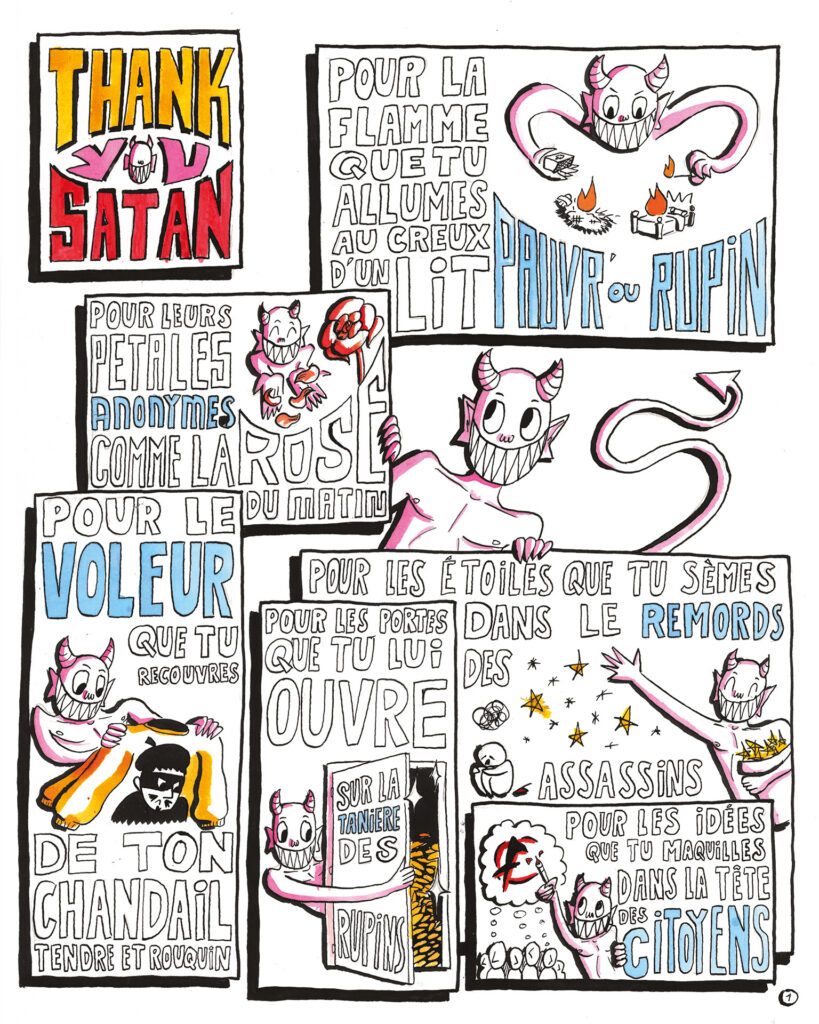 THANK
YOU
SATAN
POUR LA
FLAMME
QUE TU
ALLUMES
AU CREUX
D'UN LIT
PAUVR' OU RUPIN
POUR LEURS
PETALES
ANONYMES
COMME LA ROSE
DU MATIN
POUR LE
VOLEUR
QUE TU
RECOUVRES
DE TON
CHANDAIL
TENDRE ET ROUQUIN
POUR LES PORTES
QUE TU LUI
OUVRE
SUR LA
TANIERE
DES
RUPINS
POUR LES ÉTOILES QUE TU SÈMES
DANS LE REMORDS
DES
ASSASSINS
POUR LES IDÉES
QUE TU MAQUILLES
DANS LA TÊTE
DES CITOYENS
1